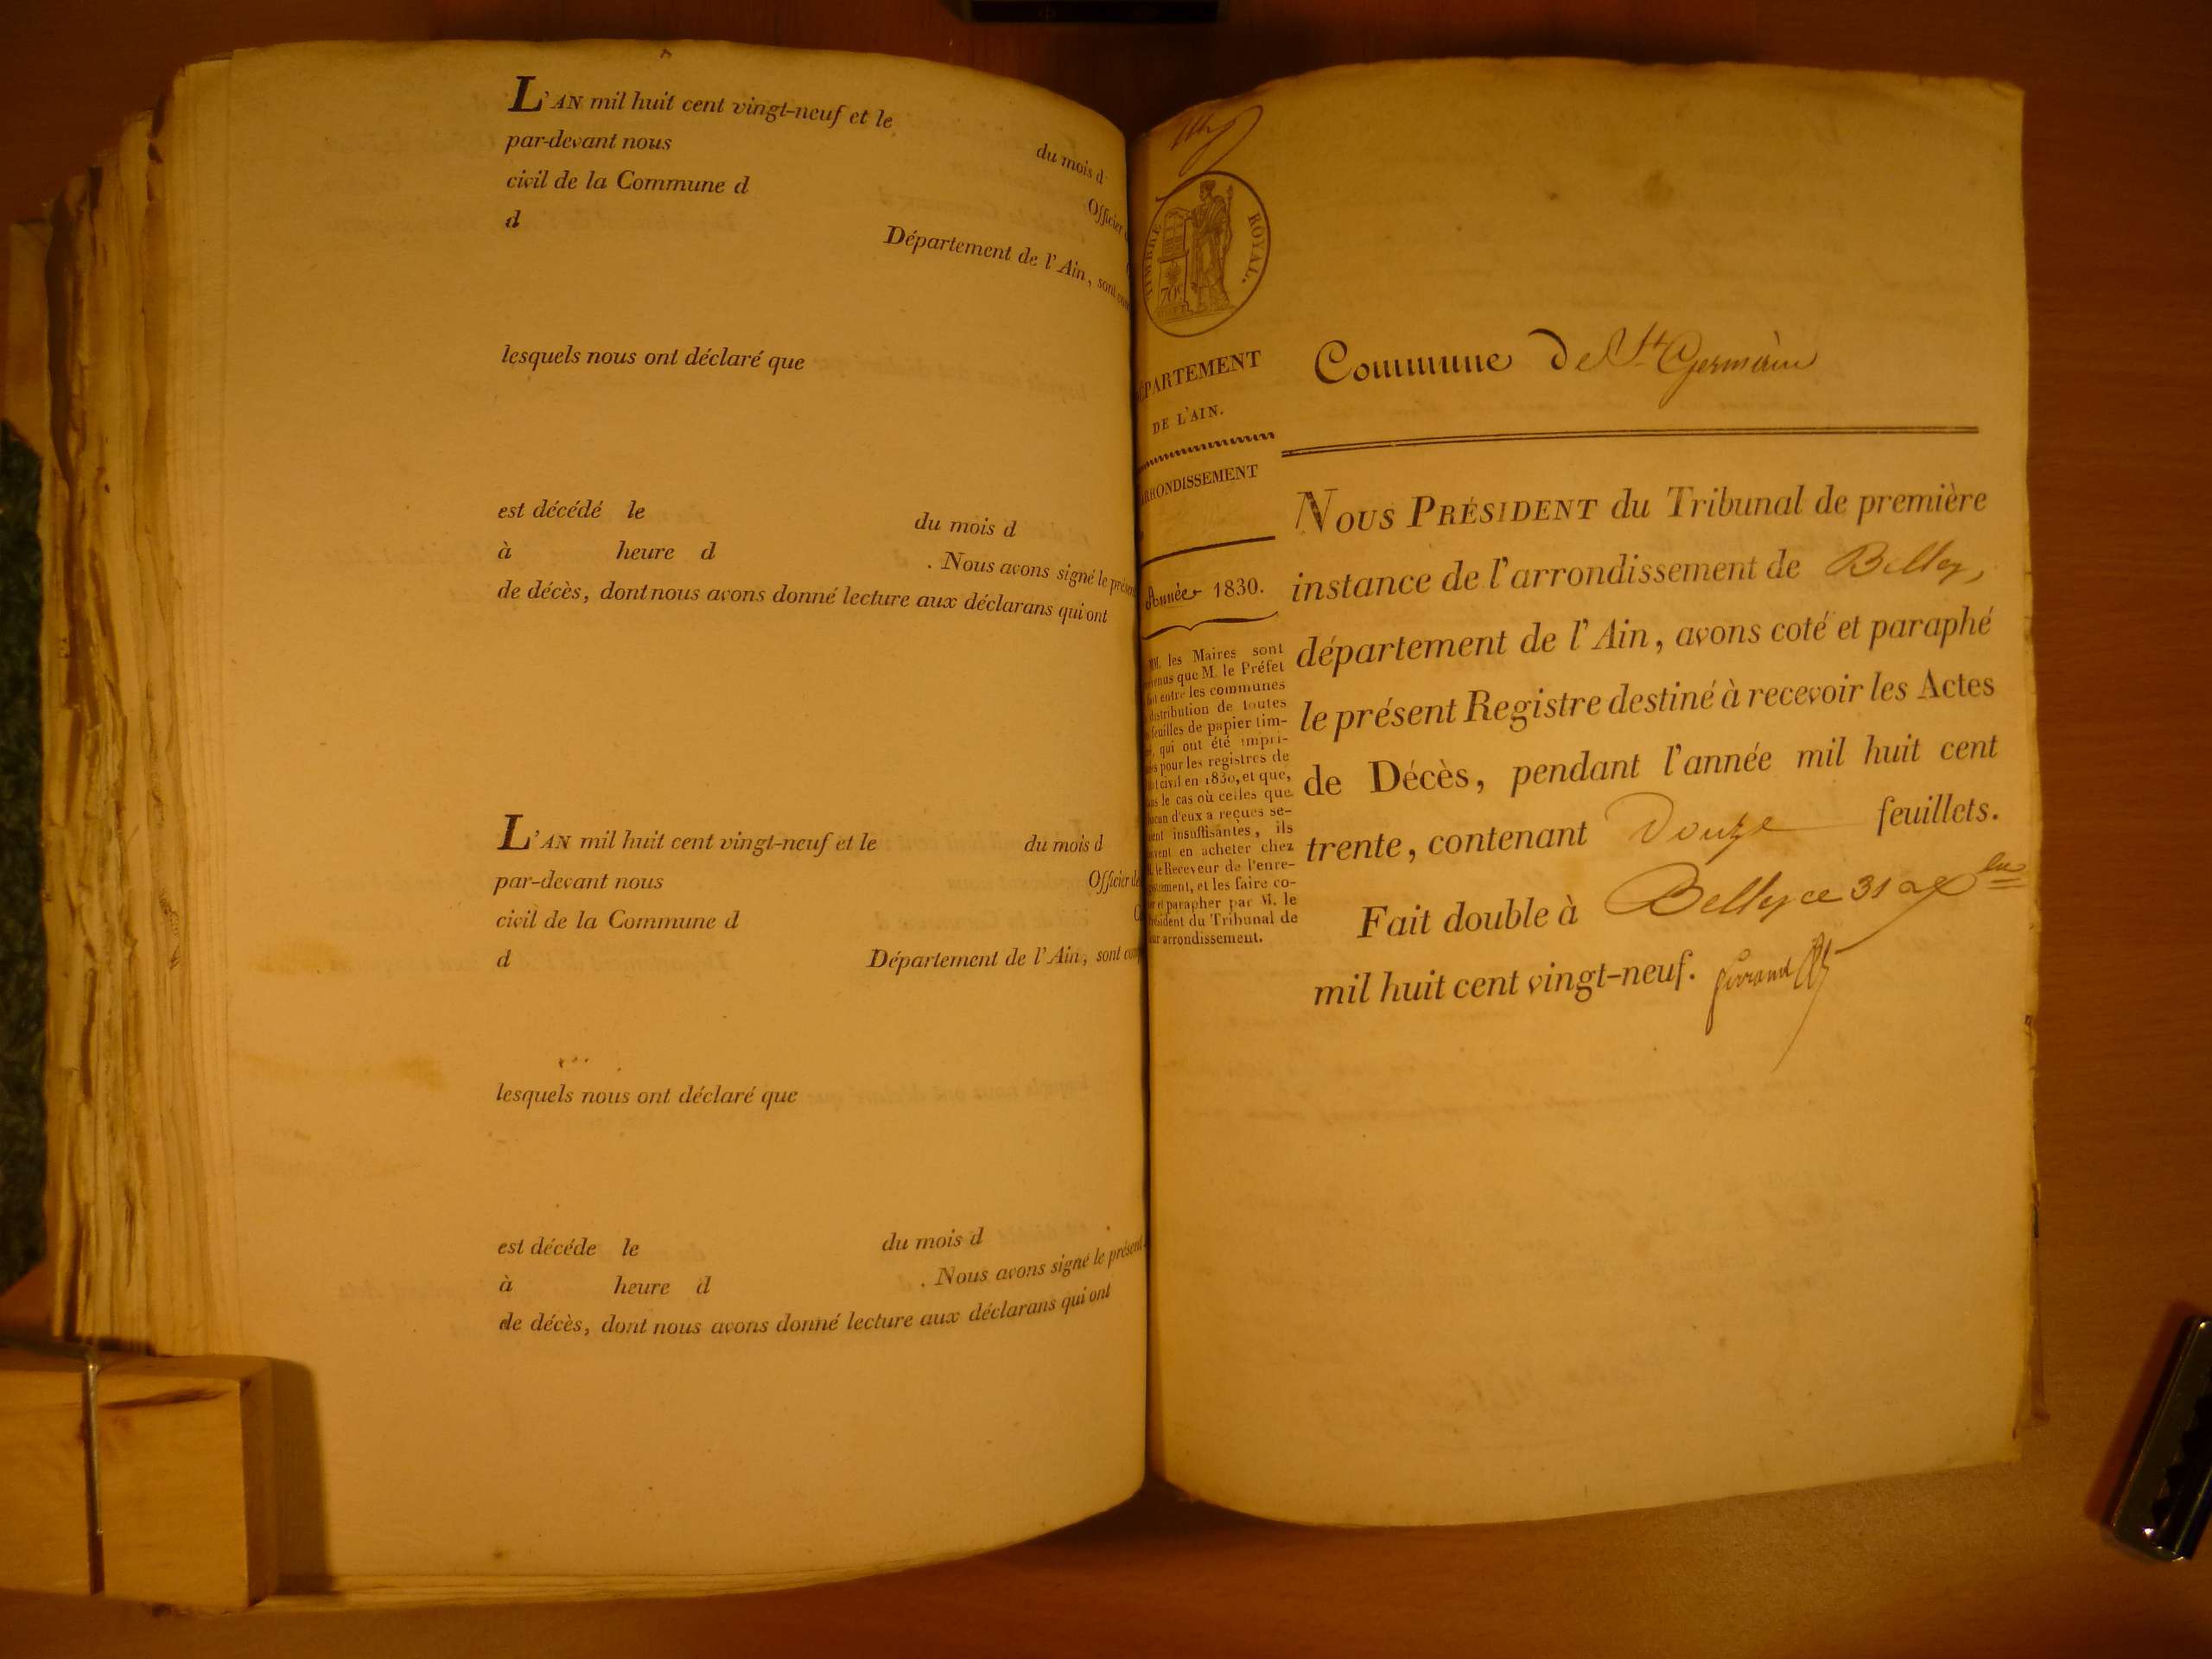 L'AN mil huit cent vingt-neuf et le du mois d
par-devant nous Officier
civil de la Commune d
d Département de l'Ain, sont
lesquels nous ont déclaré que
est décédé le du mois d
à heure d . Nous avons signé le
de décès, dont nous avons donné lecture aux déclarans qui ont
L'AN mil huit cent vingt-neuf et le du mois d
par-devant nous Officier de
civil de la Commune d
d Département de l'Ain, sont
lesquels nous ont déclaré que
est décéde le du mois d
à heure d . Nous avons signé le présent
de décès, dont nous avons donné lecture aux déclarans qui ont
TIMBRE ROYAL.
70c
DÉPARTEMENT
DE L'AIN.
ARRONDISSEMENT
Année 1830.
MM. les Maires sont
prévenus que M. le Préfet
fait entre les communes
distribution de toutes
feuilles de papier tim-
, qui ont été impri-
pour les registres de
civil en 1830, et que,
le cas où celles que
d'eux a reçues se-
insuffisantes, ils
en acheter chez
le Receveur de l'enre-
et les faire co-
et parapher par M. le
Président du Tribunal de
arrondissement.
Commune de St Germain
NOUS PRÉSIDENT du Tribunal de première
instance de l'arrondissement de Belley,
département de l'Ain, avons coté et paraphé
le présent Registre destiné à recevoir les Actes
de Décès, pendant l'année mil huit cent
trente, contenant Douze feuillets.
Fait double à Belley ce 31
mil huit cent vingt-neuf.